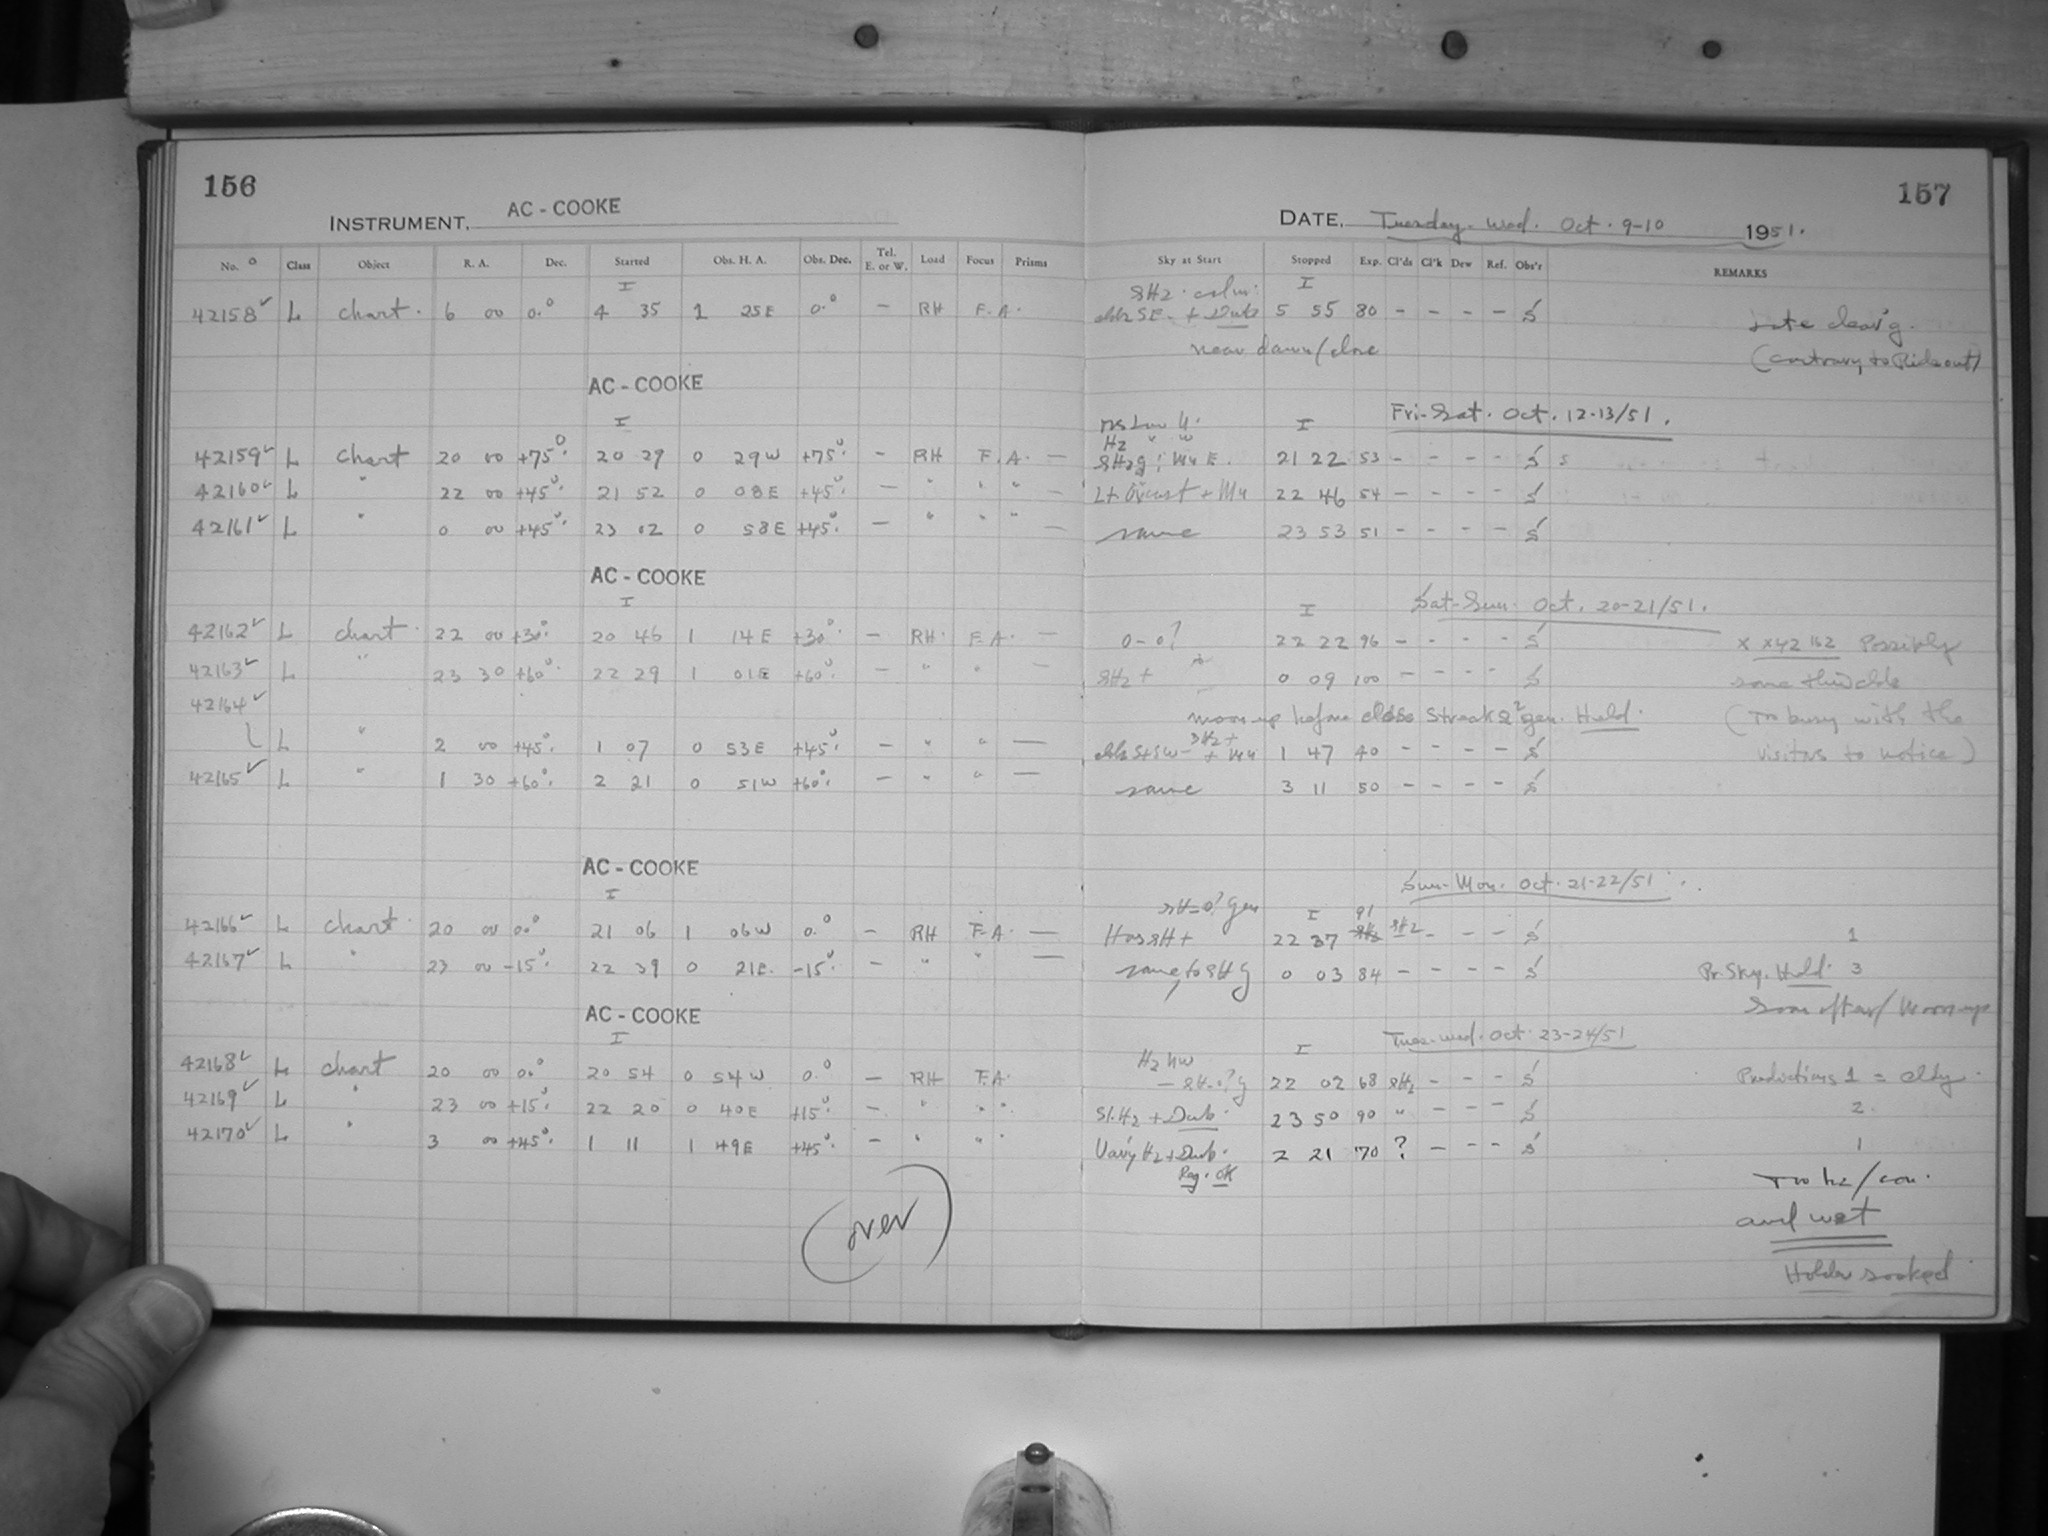 156
INSTRUMENT, AC - COOKE
No. Class Object R. A. Dec. Started Obs. H. A. Obs. Dec. Tel. E. or W. Load Focus Prisms
I
42158 ✓ L chart. 6 00 0.° 4 35 1 25E 0.° — RH F.A.
AC - COOKE
I
42159 ✓ L chart 20 00 +75° 20 29 0 29W +75° — RH F.A. —
42160 ✓ L " 22 00 +45° 21 52 0 08E +45° — " " " —
42161 ✓ L " 0 00 +45° 23 02 0 58E +45° — " " " —
AC - COOKE
I
42162 ✓ L chart. 22 00 +30° 20 46 1 14E +30° — RH. F.A. —
42163 ✓ L " 23 30 +60° 22 29 1 01E +60° — " " —
42164 ✓
L " 2 00 +45° 1 07 0 53E +45° — " " —
42165 ✓ L " 1 30 +60° 2 21 0 51W +60° — " " —
AC - COOKE
I
42166 ✓ L chart. 20 00 0.° 21 06 1 06W 0.° — RH F.A. —
42167 ✓ L " 23 00 -15° 22 39 0 21E. -15° — " " —
AC - COOKE
I
42168 ✓ L chart 20 00 0.° 20 54 0 54W 0.° — RH F.A.
42169 ✓ L " 23 00 +15° 22 20 0 40E +15° — " " "
42170 ✓ L " 3 00 +45° 1 11 1 49E +45° — " " "
(over)
157
DATE, Tuesday-Wed. Oct. 9-10 1951.
Sky at Start Stopped Exp. Cl'ds Cl'k Dew Ref. Obs'r REMARKS
SHz. calm. I
SE- + Dub 5 55 80 - - - - S
near dawn/close
Late clear'g.
(contrary to Rideout)
Fri-Sat. Oct. 12-13/51.
I
Hz " "
21 22 53 - - - - S
Lt. Ov'cast + 22 46 54 - - - - S
same 23 53 51 - - - - S
Sat-Sun. Oct. 20-21/51.
I
0-0? 22 22 96 - - - - S x x42162 Possibly
SHz + 0 09 100 - - - - S some thin clds
moon up before close Streaks gen. Hald. (Too busy with the
1 47 40 - - - - S visitors to notice)
same 3 11 50 - - - - S
Sun-Mon. Oct. 21-22/51.
sH-0? gen I 91
Has sH+ 22 37 SHz - - - S 1
same to sH g 0 03 84 - - - - S Pr. Sky. Hald. 3
Soon after/Moon up
Tues-Wed. Oct. 23-24/51
Hz NW I
- sH-0? g 22 02 68 SHz - - - S Predictions 1 = cldy.
Sl. Hz + Dub. 23 50 90 " - - - S 2.
V'avy Hz + Dub. 2 21 70 ? - - - S 1
Reg. OK
Too hz/con.
and wet
Holder soaked